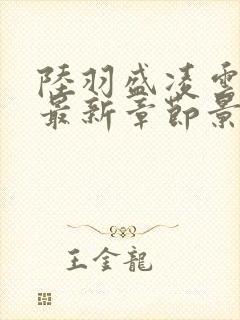 陸羽盛凌雲
最新章節景
王金龍